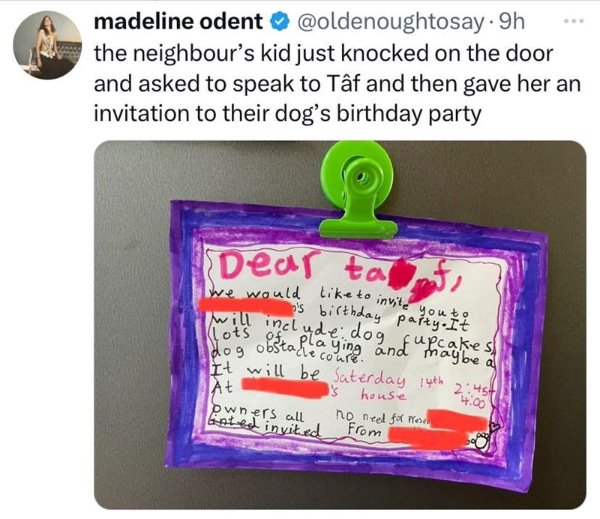 madeline odent @oldenoughtosay · 9h
the neighbour's kid just knocked on the door
and asked to speak to Tâf and then gave her an
invitation to their dog's birthday party
Dear taf,
we would like to invite you to
's birthday party. It
will include: dog fupcakes,
lots of playing and maybe a
dog obstacle course.
It will be Saterday 14th 2:45
4:00
At 's house
owners all no need for
invited From